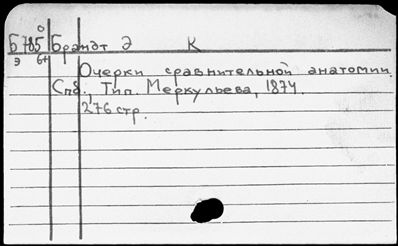 Б785 Брандт Э К
Э 6+
Очерки сравнительной анатомии.
Спб., Тип. Меркульева, 1874.
276 стр.